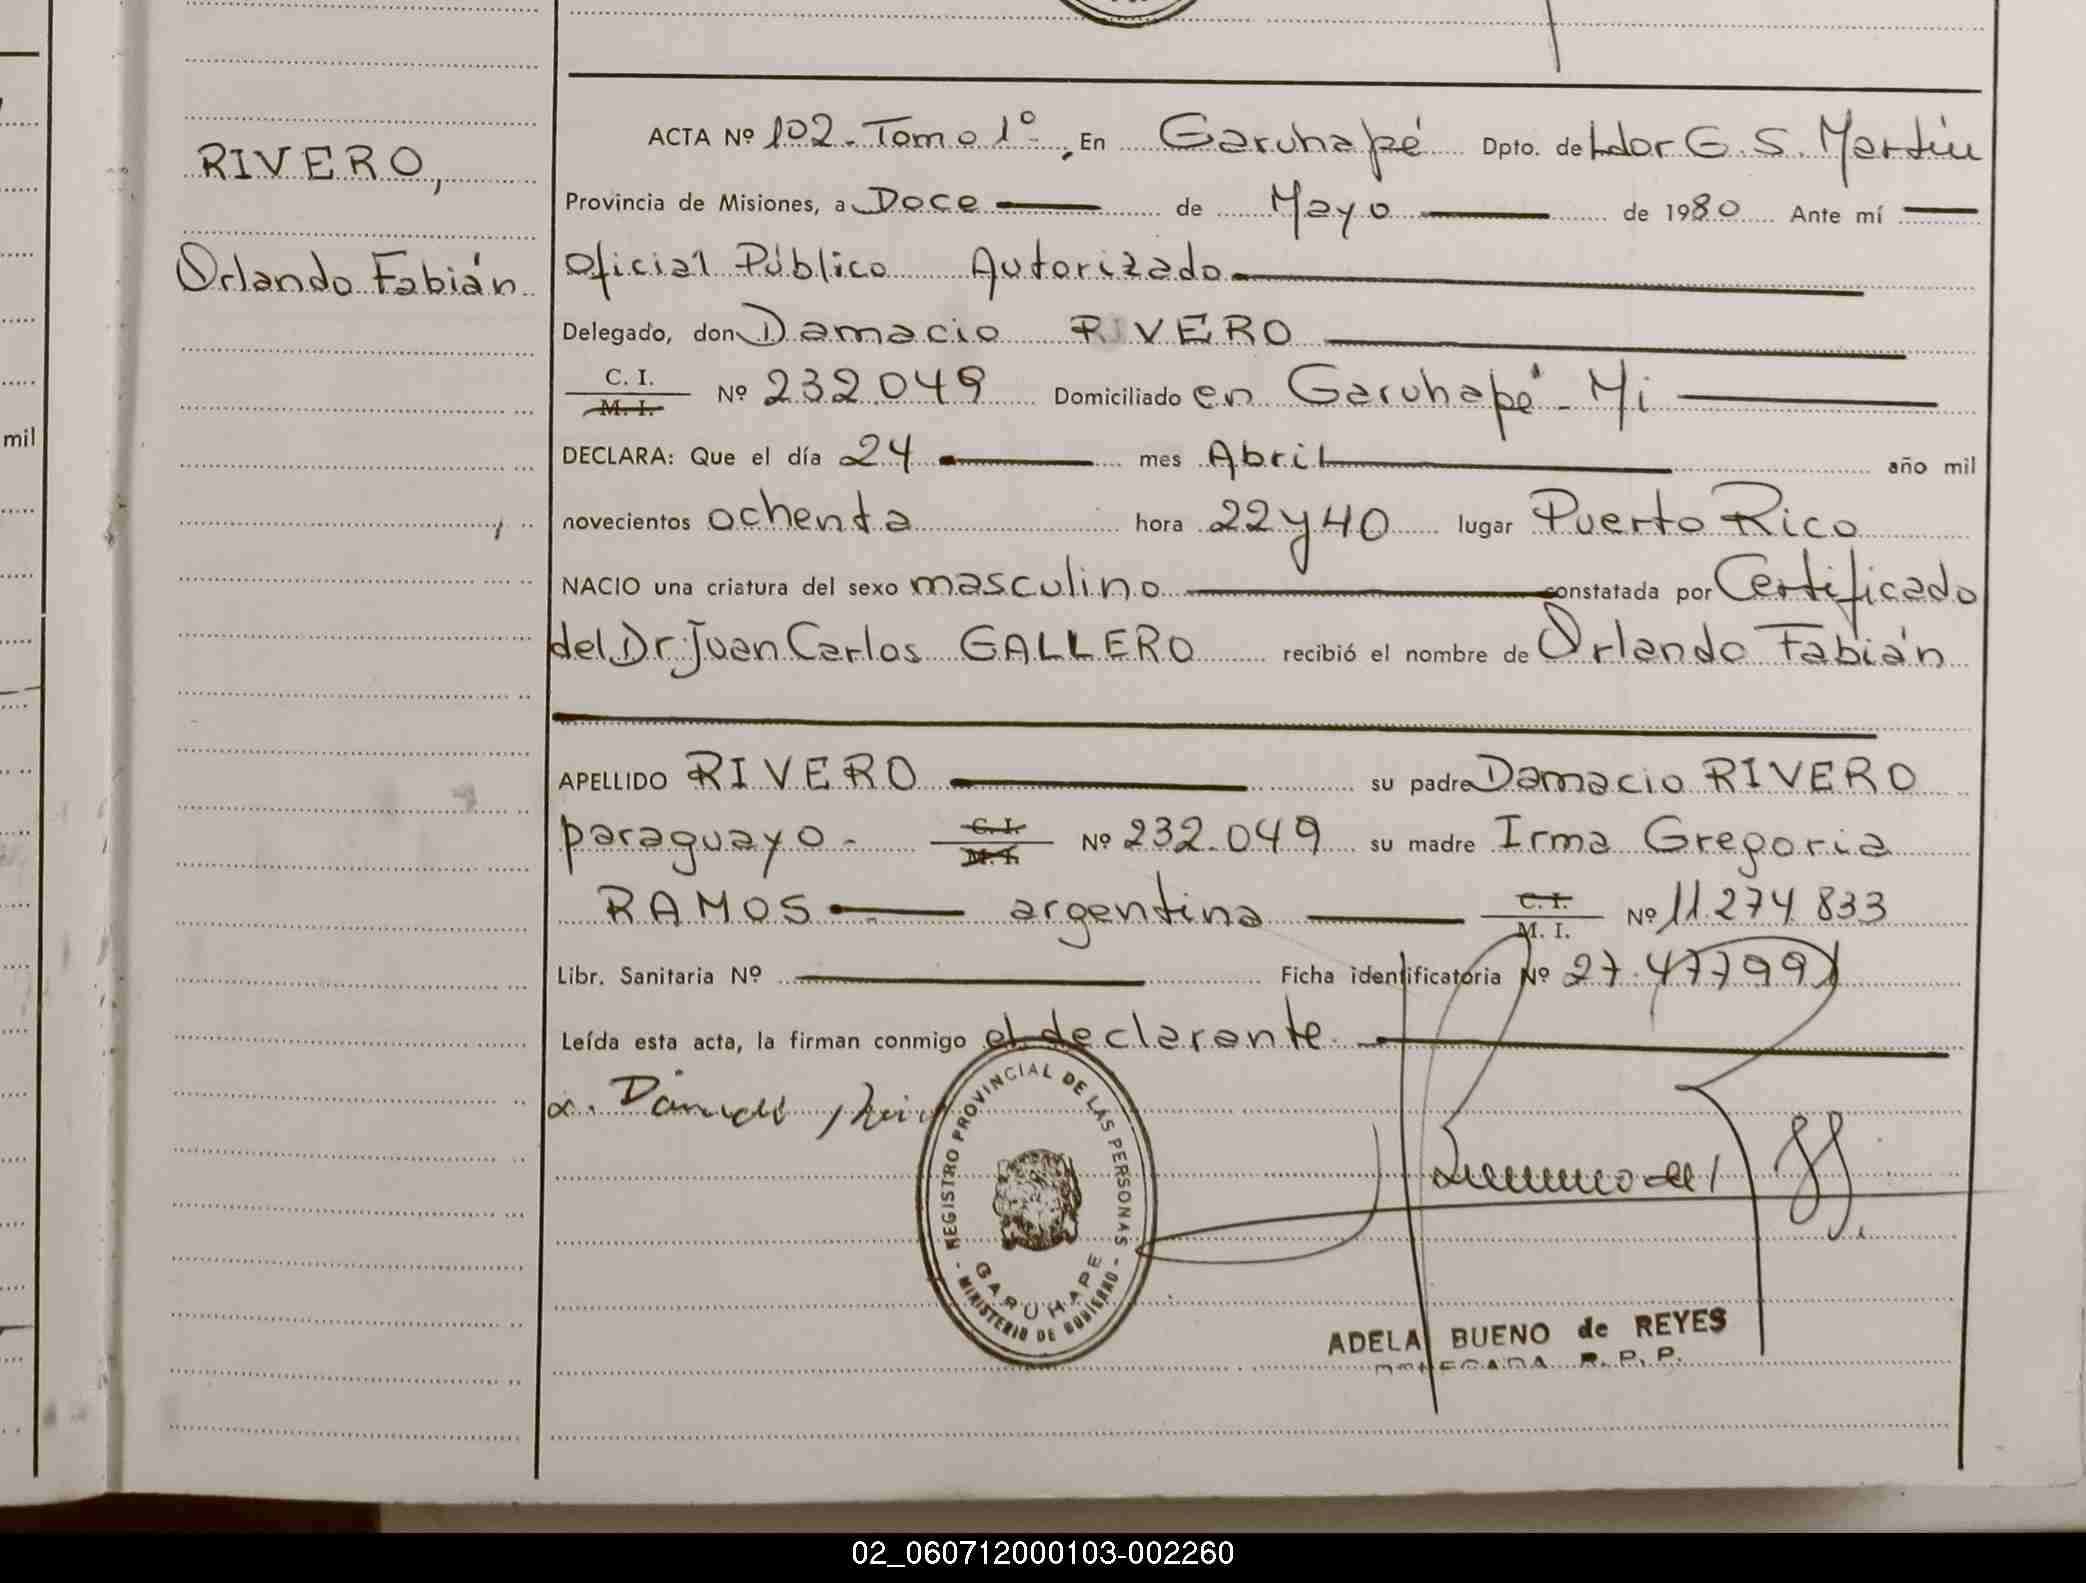 RIVERO,
Orlando Fabián
ACTA Nº 102 - Tomo 1º - , En Garuhapé Dpto. de Ldor G. S. Martín
Provincia de Misiones, a Doce de Mayo de 1980 Ante mí
Oficial Público Autorizado
Delegado, don Damacio RIVERO
C. I.
M. I. Nº 232049 Domiciliado en Garuhapé - Mi
DECLARA: Que el día 24 mes Abril año mil
novecientos ochenta hora 22 y 40 lugar Puerto Rico
NACIO una criatura del sexo masculino constatada por Certificado
del Dr. Juan Carlos GALLERO recibió el nombre de Orlando Fabián
APELLIDO RIVERO su padre Damacio RIVERO
paraguayo - C. I. M. I. Nº 232.049 su madre Irma Gregoria
RAMOS argentina C. I. M. I. Nº 11.274.833
Libr. Sanitaria Nº Ficha identificatoria Nº 27.477.991
Leída esta acta, la firman conmigo el declarante.
REGISTRO PROVINCIAL DE LAS PERSONAS
GARUHAPE
- MINISTERIO DE GOBIERNO -
ADELA BUENO de REYES
DELEGADA R. P. P.
mil
02_060712000103-002260